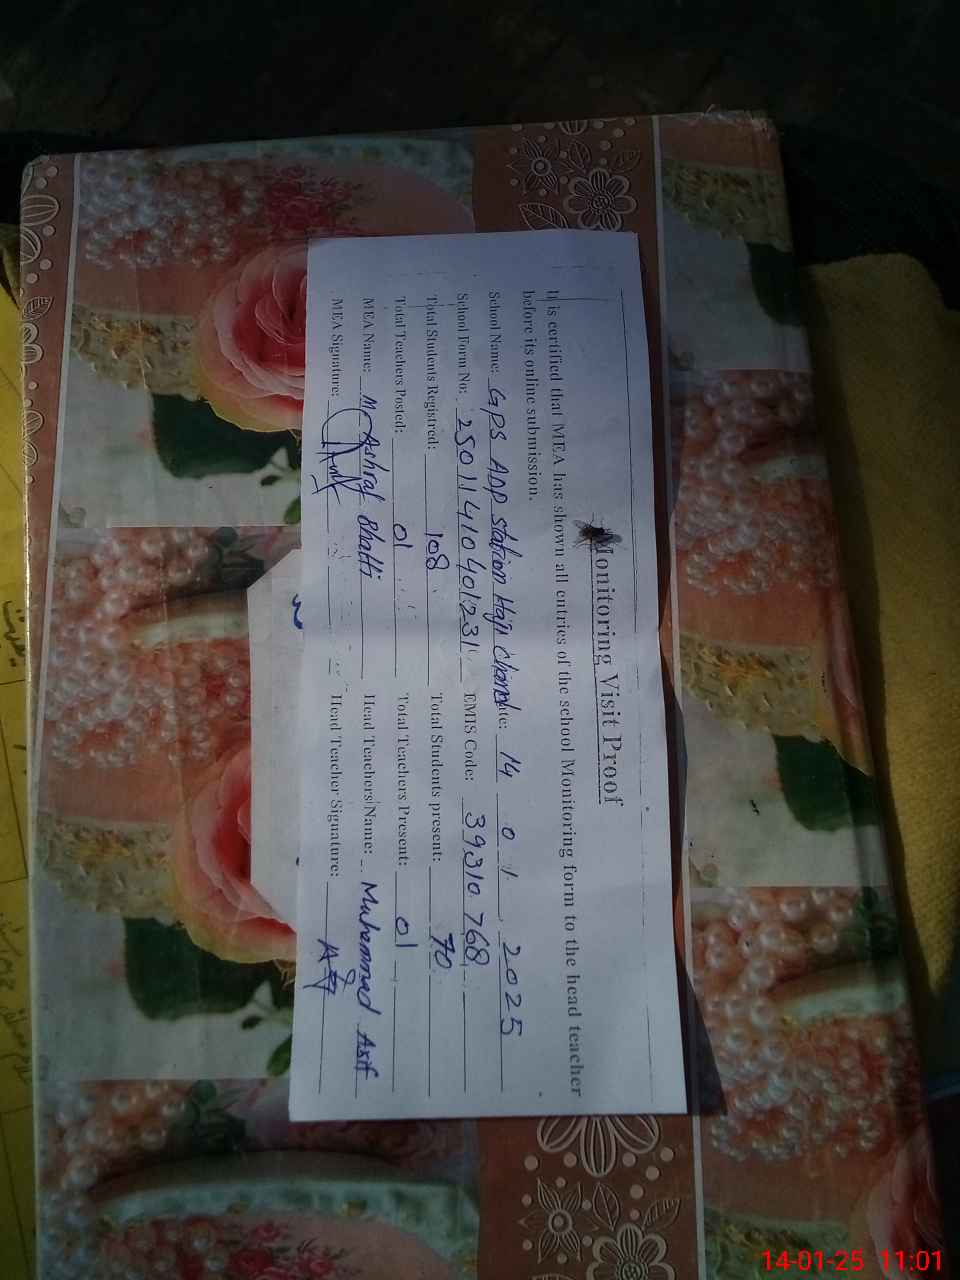 Monitoring Visit Proof
It is certified that MEA has shown all entries of the school Monitoring form to the head teacher
before its online submission.
School Name: GPS ADP Station Haji Chand Date: 14 01 2025
School Form No: 25011410401231 EMIS Code: 39310768
Total Students Registred: 108 Total Students present: 70
Total Teachers Posted: 01 Total Teachers Present: 01
MEA Name: M Ashraf Bhatti Head Teachers Name: Muhammad Asif
MEA Signature: Head Teacher Signature:
14-01-25 11:01